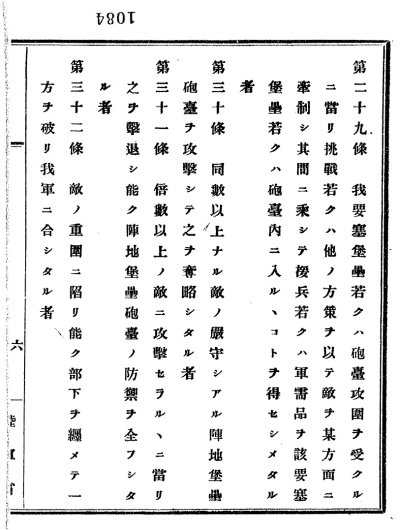 1084
第二十九條 我要塞堡壘若クハ砲臺攻圍ヲ受クル
ニ當リ挑戰若クハ他ノ方策ヲ以テ敵ヲ某方面ニ
牽制シ其間ニ乘シテ援兵若クハ軍需品ヲ該要塞
堡壘若クハ砲臺內ニ入ルヽコトヲ得セシメタル
者
第三十條 同數以上ナル敵ノ嚴守シアル陣地堡壘
砲臺ヲ攻擊シテ之ヲ奪略シタル者
第三十一條 倍數以上ノ敵ニ攻擊セラルヽニ當リ
之ヲ擊退シ能ク陣地堡壘砲臺ノ防禦ヲ全フシタ
ル者
第三十二條 敵ノ重圍ニ陷リ能ク部下ヲ纏メテ一
方ヲ破リ我軍ニ合シタル者
六